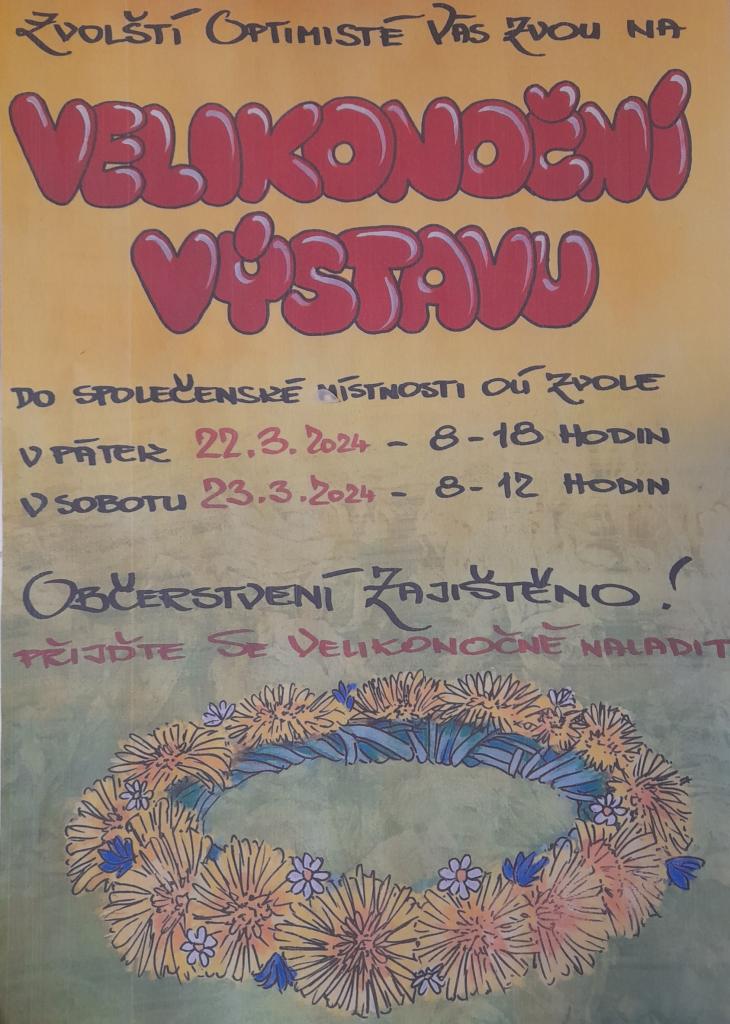 Zvolští Optimisté Vás zvou na
VELIKONOČNÍ
VÝSTAVU
DO SPOLEČENSKÉ MÍSTNOSTI OÚ ZVOLE
V PÁTEK 22.3.2024 - 8-18 HODIN
V SOBOTU 23.3.2024 - 8-12 HODIN
OBČERSTVENÍ ZAJIŠTĚNO!
PŘIJĎTE SE VELIKONOČNĚ NALADIT